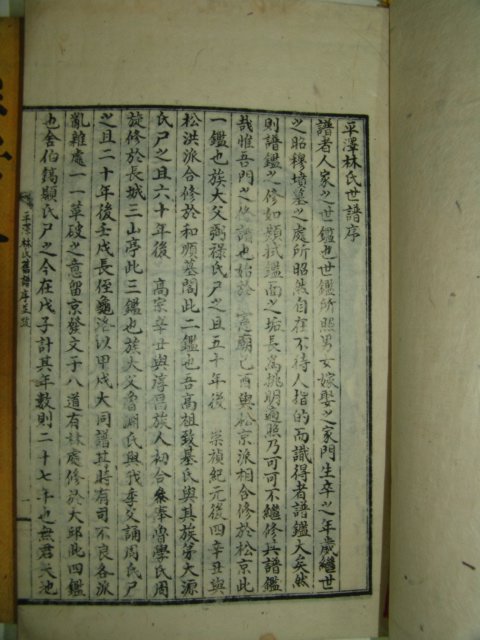 平澤林氏世譜序
譜者人家之世鑑也世鑑所照男女嫁娶之家門生卒之年歲繼世
之昭穆墳墓之處所昭然自在不待人指的而識得者譜鑑大矣然
則譜鑑之修如類拭鑑面之垢長爲挑明適照乃可可不繼修其譜鑑
哉惟吾門之修譜也始於 憲廟己酉與松京派相合修於松京此
一鑑也族大父弼祿氏尸之且五十年後 崇禎紀元後四辛丑與
松洪派合修於和順墓閣此二鑑也吾高祖致基氏與其族弟大源
氏尸之且六十年後 高宗辛丑與淳昌族人初合參奉魯學氏周
旋修於長城三山亭此三鑑也族大父魯淵氏與我季父誦周氏尸
之且二十年後壬戌長侄龜洛以甲戌大同譜其時有司不良各派
亂雜處一一革破之意留京發文于八道有林處修於大邱此四鑑
也舍伯鎬顯氏尸之今在戊子計其年數則二十七年也無君天地
平澤林氏舊譜序
一